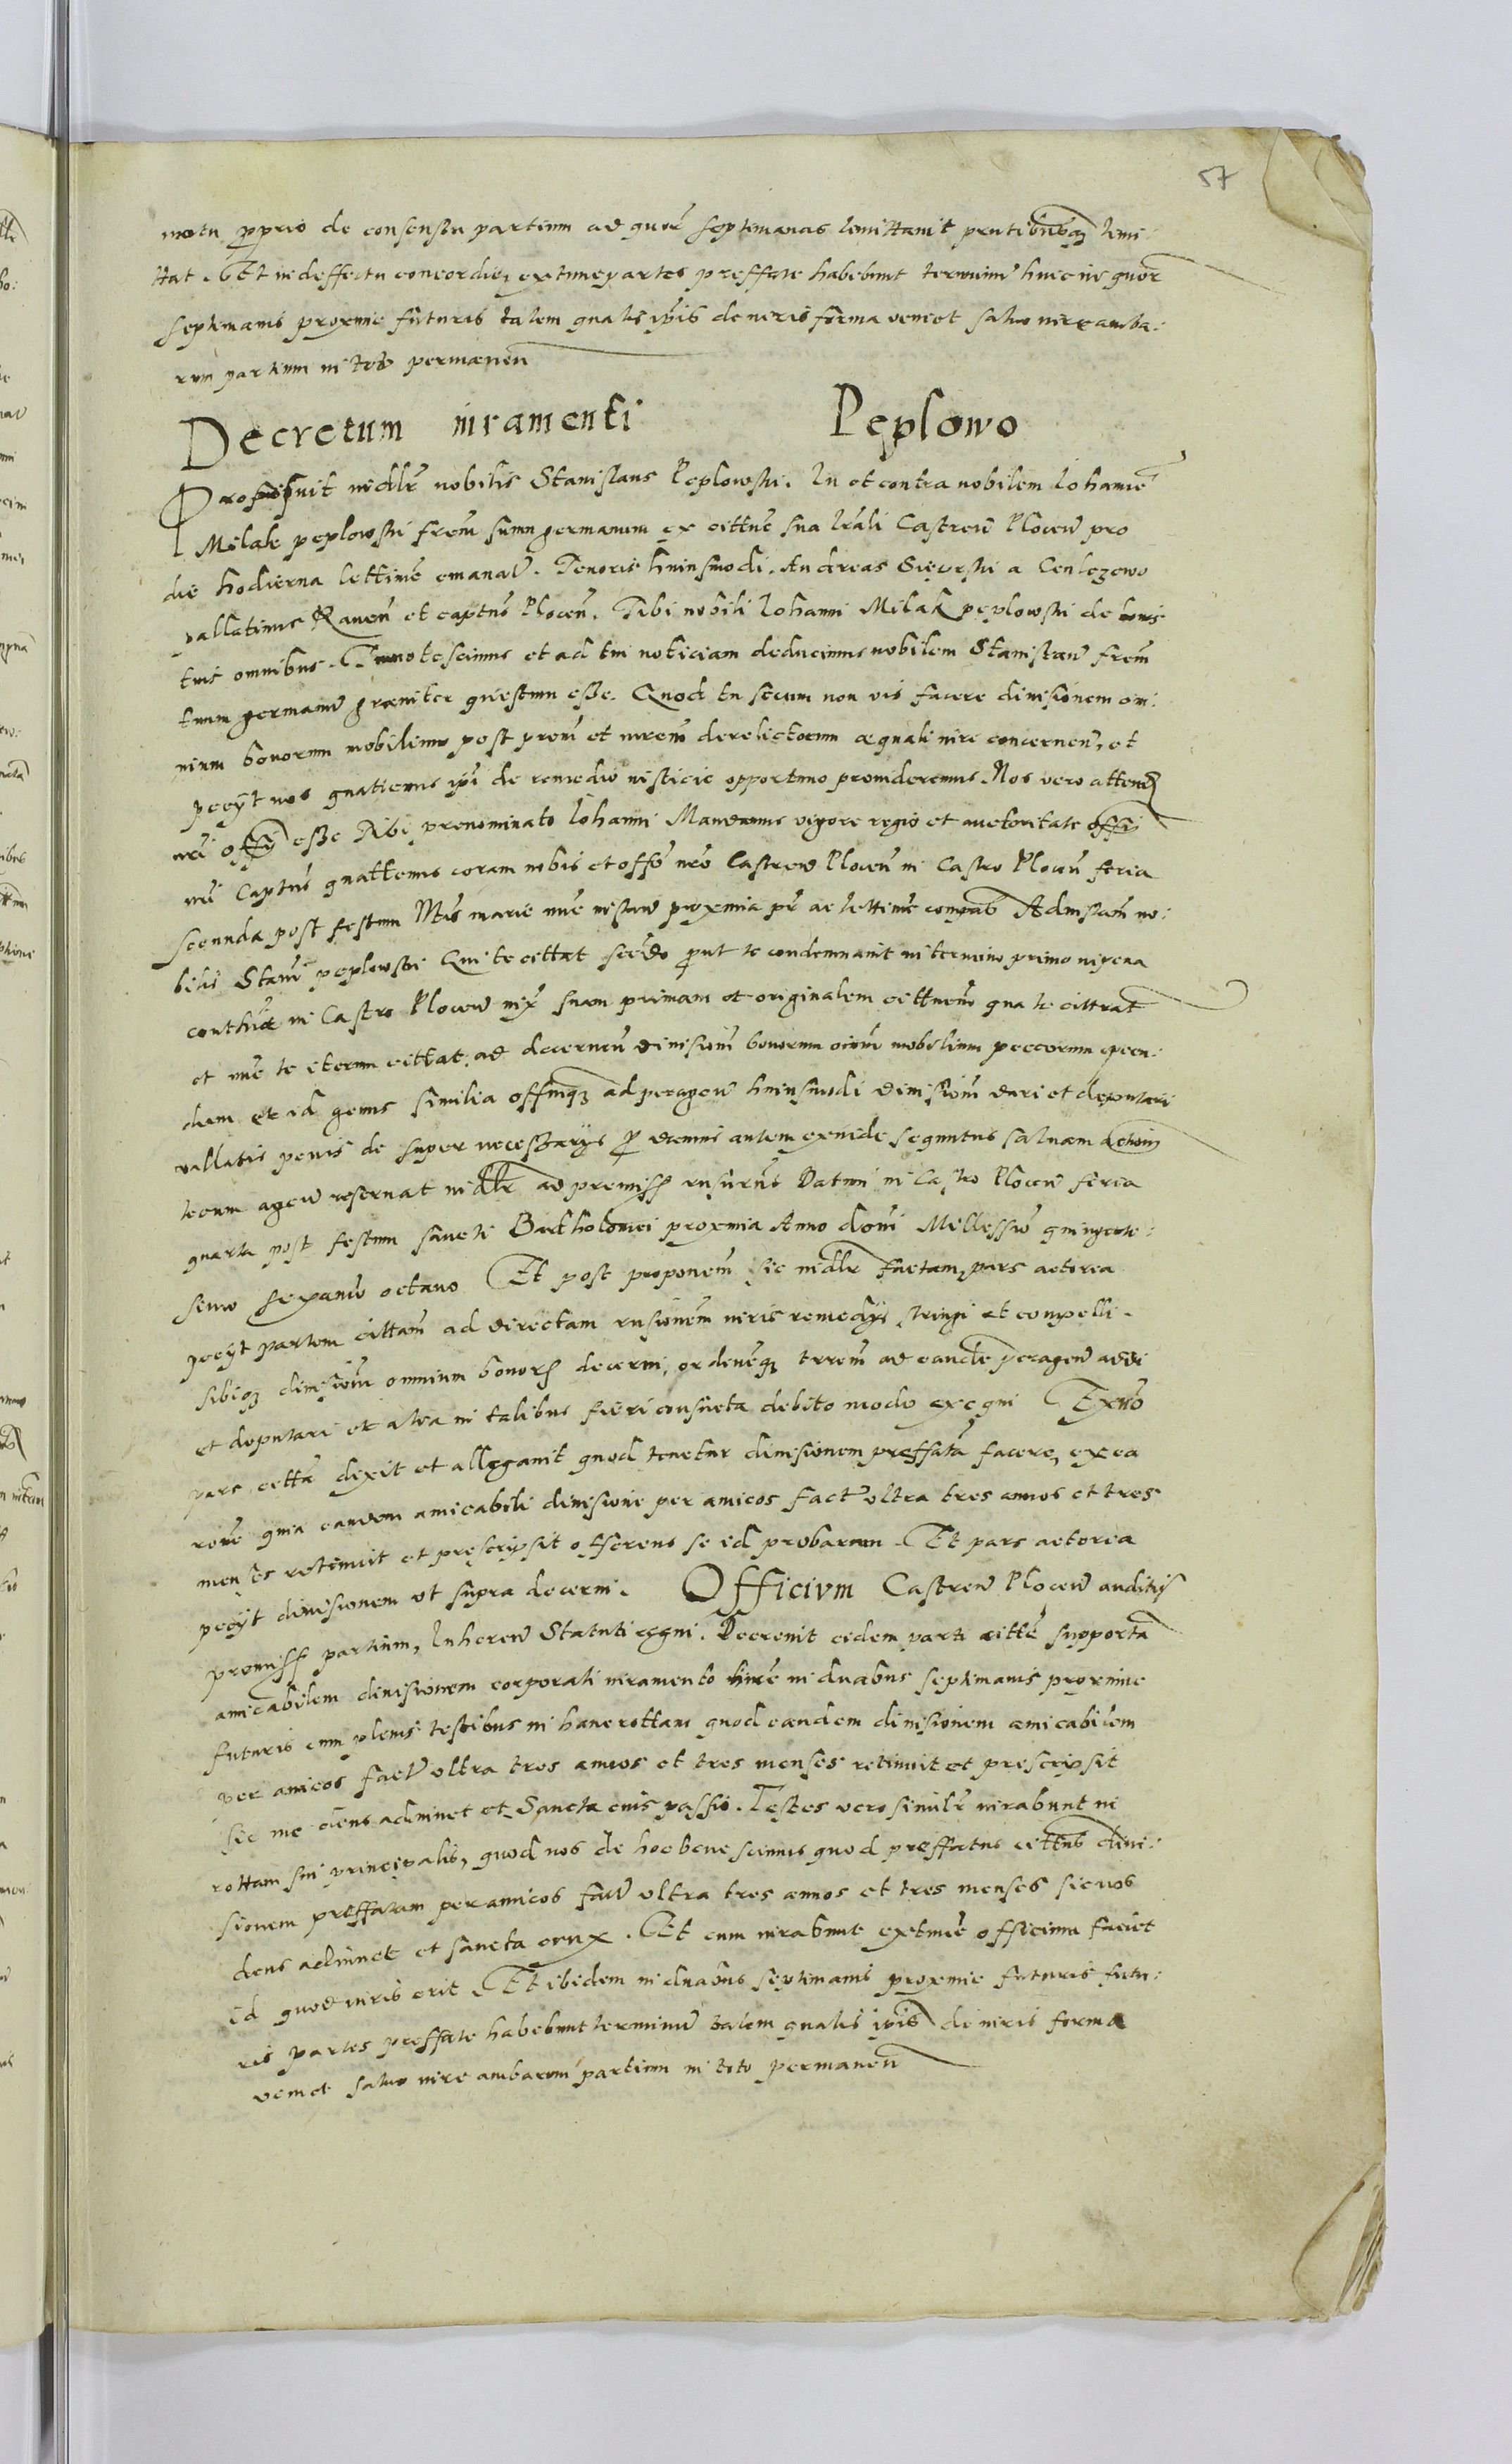 57
motu pprio de consensu partium ad quor septimanas limittavit prutibusq limi:
ttat. Et in deffectu concordiæ, extunc partes preffate habebunt terminũ hinc in quor
septimanis proxime futuris talem qualis ipis de iuris forma veniet salvo iure amba:
rum partium in toto permanen
Decretum iuramenti Peplowo
Proposuit iudlr nobilis Stanislaus Peplowski. In et contra nobilem Iohanne
Milak peplowski frem suum germanum ex cittne sua lrali Castren Plocen pro
die hodierna lettime emanat. Tenoris huiusmodi. Andreas Sieprski a Ceulegowo
pallatinus Raven et captus Plocen. Tibi nobili Iohanni Milak peplowski de bonis
tuis omnibus. Innotescimus et ad tui noticiam deducimus nobilem Stanislaũ frem
tuum germanũ graviter questum esse. Quod tu secum non vis facere divisionem om:
nium bonorum mobilium post prem et mrem derelictorum æquali iure concernen, et
peryt nos quatenus ipi de remedio iusticie opportuno provideremus. Nos vero attenden
nri offy esse Tibi prenominato Iohanni Mandamus vigore regio et auctoritate offy
nri Captus quattenus coram nobis et offo nro Castren Plocen in Castro Plocen feria
secunda post festum Nts marie nue instan proxmia pr ac lettime compas Ad instam no:
bilis Stani peplowski Qui te cittat secdo prut te condemnavit in termino primo in pena
conthus in Castro Plocen iux suam primam et originalem cittnem qua te cittrat
et nue te iterum cittat. ad decernen divisiom bonorum oium mobilium peccorum pecu:
dum et id genus similia offmq ad peragen huiusmodi divisiom dari et deputari
vallatis penis de super necessarys p damnis autem exinde sequutus salvam actiom
tecum agen reservat iudlr ad premiss rusurus Datum in Castro Plocen feria
quarta post festum sancti Bartholomei proxmia Anno domi Millessio quingente:
simo sexanto octavo Et post proponem sic iudlr factam, pars actorea
peeyt partem cittam ad directam rusionem iuris remedys stringi et compelli.
sibiq divisiom omnium bonor decerni, ordinemq trrem ad eande peragen addi
et deputari et alia in talibus fieri consueta debito modo exequi Exuo
pars citta dixit et allegavit quod tenetur divisionem preffata facere, ex ea
rone quia eandem amicabili divisione per amicos fact ultra tres annos et tres
menses retinuit et prescripsit offerens se id probaram. Et pars actorea
peeyt divisionem ut supra decerni. Officivm Castren Plocen auditis
premiss partium, Inheren Statuti regni. Decrevit eidem parti citte supporta
amicabilem divisionem corporali iuramento hinc in duabus septimanis proxime
futuris cum plenis testibus in hanc rottam quod eandem divisionem amicabilem
per amicos fact ultra tres annos et tres menses retinuit et prescripsit
sic me deus adiuvet et Sancta eius passio. Testes vero similr iurabunt in
rottam sui principalis, quod nos de hoc bene scimus quod preffatus cittus divi:
sionem preffatam per amicos fact ultra tres annos et tres menses sic nos
deus adiuvet et sancta crux. Et cum iurabunt extunc officium faciet
id quod iuris erit. Et ibidem in duabus septimanis proxime futuris futu:
ris partes preffate habebunt terminũ talem qualis ipis de iuris forma
veniet salvo iure ambarum partium in toto permanen